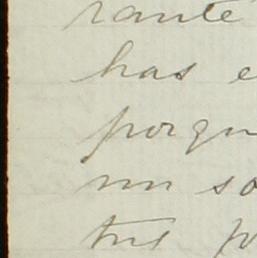 rante
has e
porqu
un so
tus p